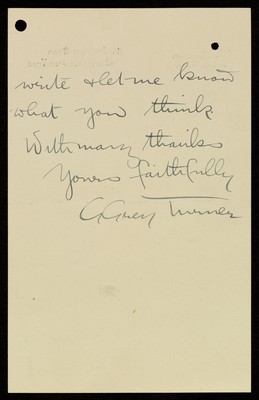 write & let me know
what you think
With many thanks
Yours faithfully
G Grey Turner